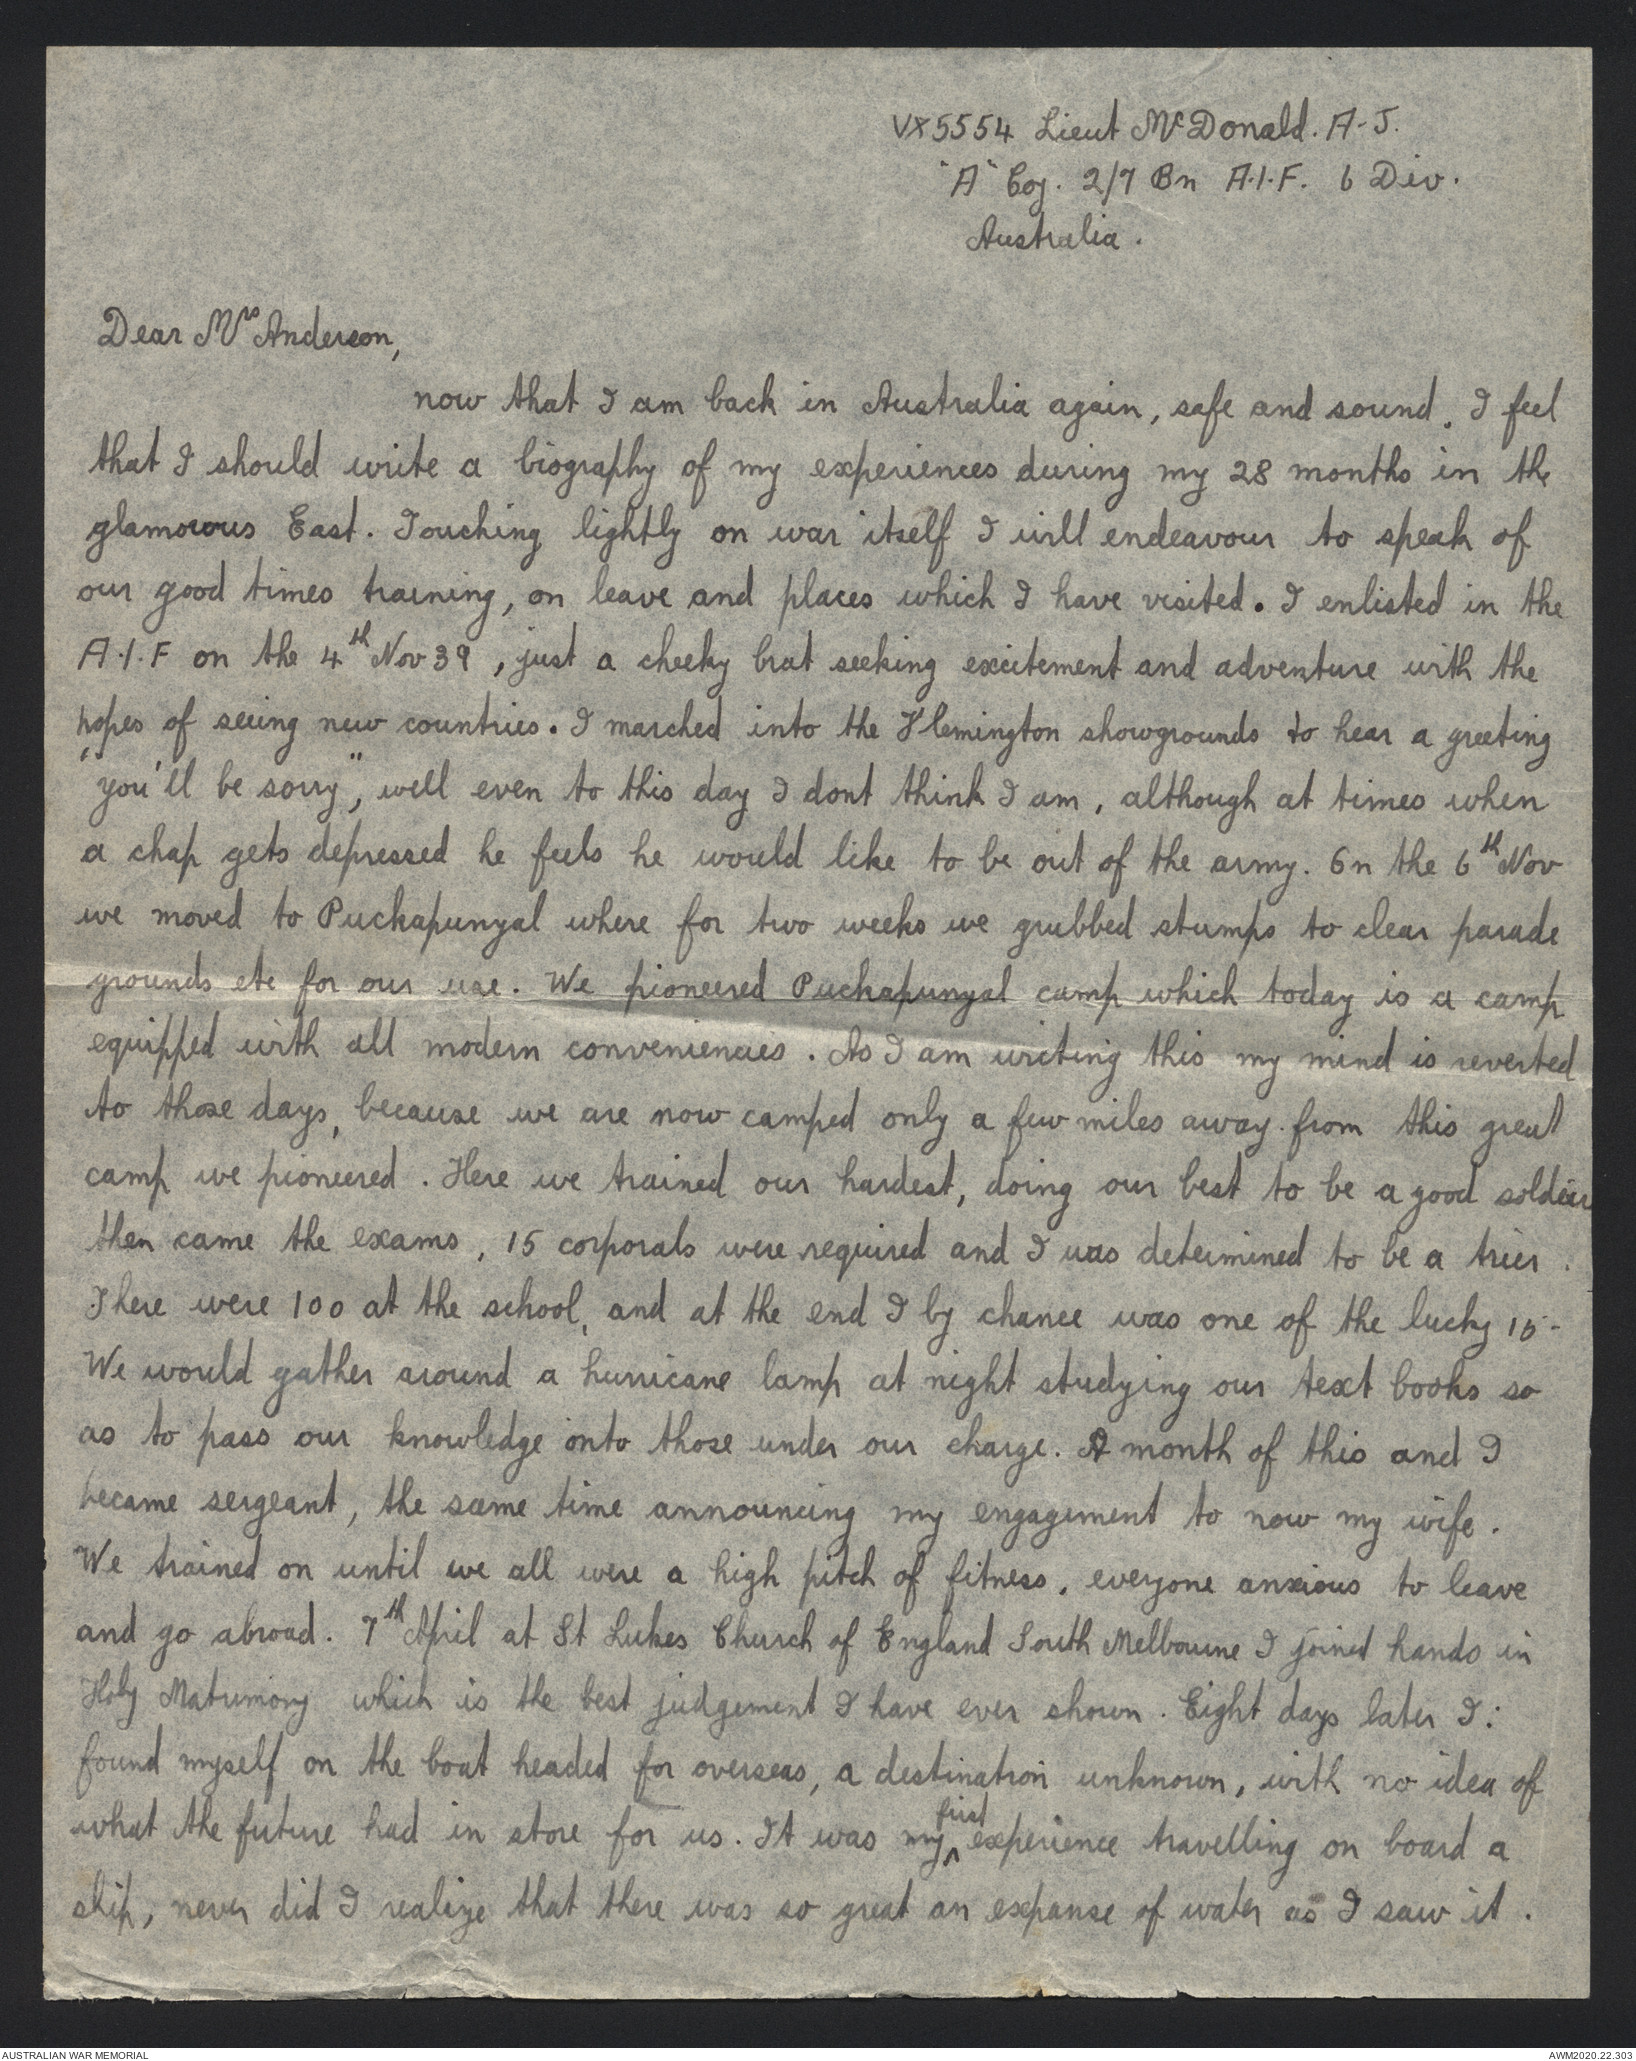 VX5554 Lieut McDonald. A-J.
"A" Coy. 2/7 Bn A.I.F. 6 Div.
Australia.
Dear Mrs Anderson,
now that I am back in Australia again, safe and sound, I feel
that I should write a biography of my experiences during my 28 months in the
glamorous East. Touching lightly on war itself I will endeavour to speak of
our good times training, on leave and places which I have visited. I enlisted in the
A.I.F on the 4th Nov 39, just a cheeky brat seeking excitement and adventure with the
hopes of seeing new countries. I marched into the Flemington showgrounds to hear a greeting
"you'll be sorry", well even to this day I dont think I am, although at times when
a chap gets depressed he feels he would like to be out of the army. On the 6th Nov
we moved to Puckapunyal where for two weeks we grubbed stumps to clear parade
grounds etc for our use. We pioneered Puckapunyal camp which today is a camp
equipped with all modern conveniencies. As I am writing this my mind is reverted
to those days, because we are now camped only a few miles away from this great
camp we pioneered. Here we trained our hardest, doing our best to be a good soldier
then came the exams, 15 corporals were required and I was determined to be a trier.
There were 100 at the school, and at the end I by chance was one of the lucky 15-
We would gather around a hurricane lamp at night studying our text books so
as to pass our knowledge onto those under our charge. A month of this and I
became sergeant, the same time announcing my engagement to now my wife.
We trained on until we all were a high pitch of fitness, everyone anxious to leave
and go abroad. 7th April at St Lukes Church of England South Melbourne I joined hands in
Holy Matrimony which is the best judgement I have ever shown. Eight days later I:
found myself on the boat headed for overseas, a destination unknown, with no idea of
what the future had in store for us. It was my first experience travelling on board a
ship, never did I realize that there was so great an expanse of water as I saw it.
AUSTRALIAN WAR MEMORIAL
AWM2020.22.303